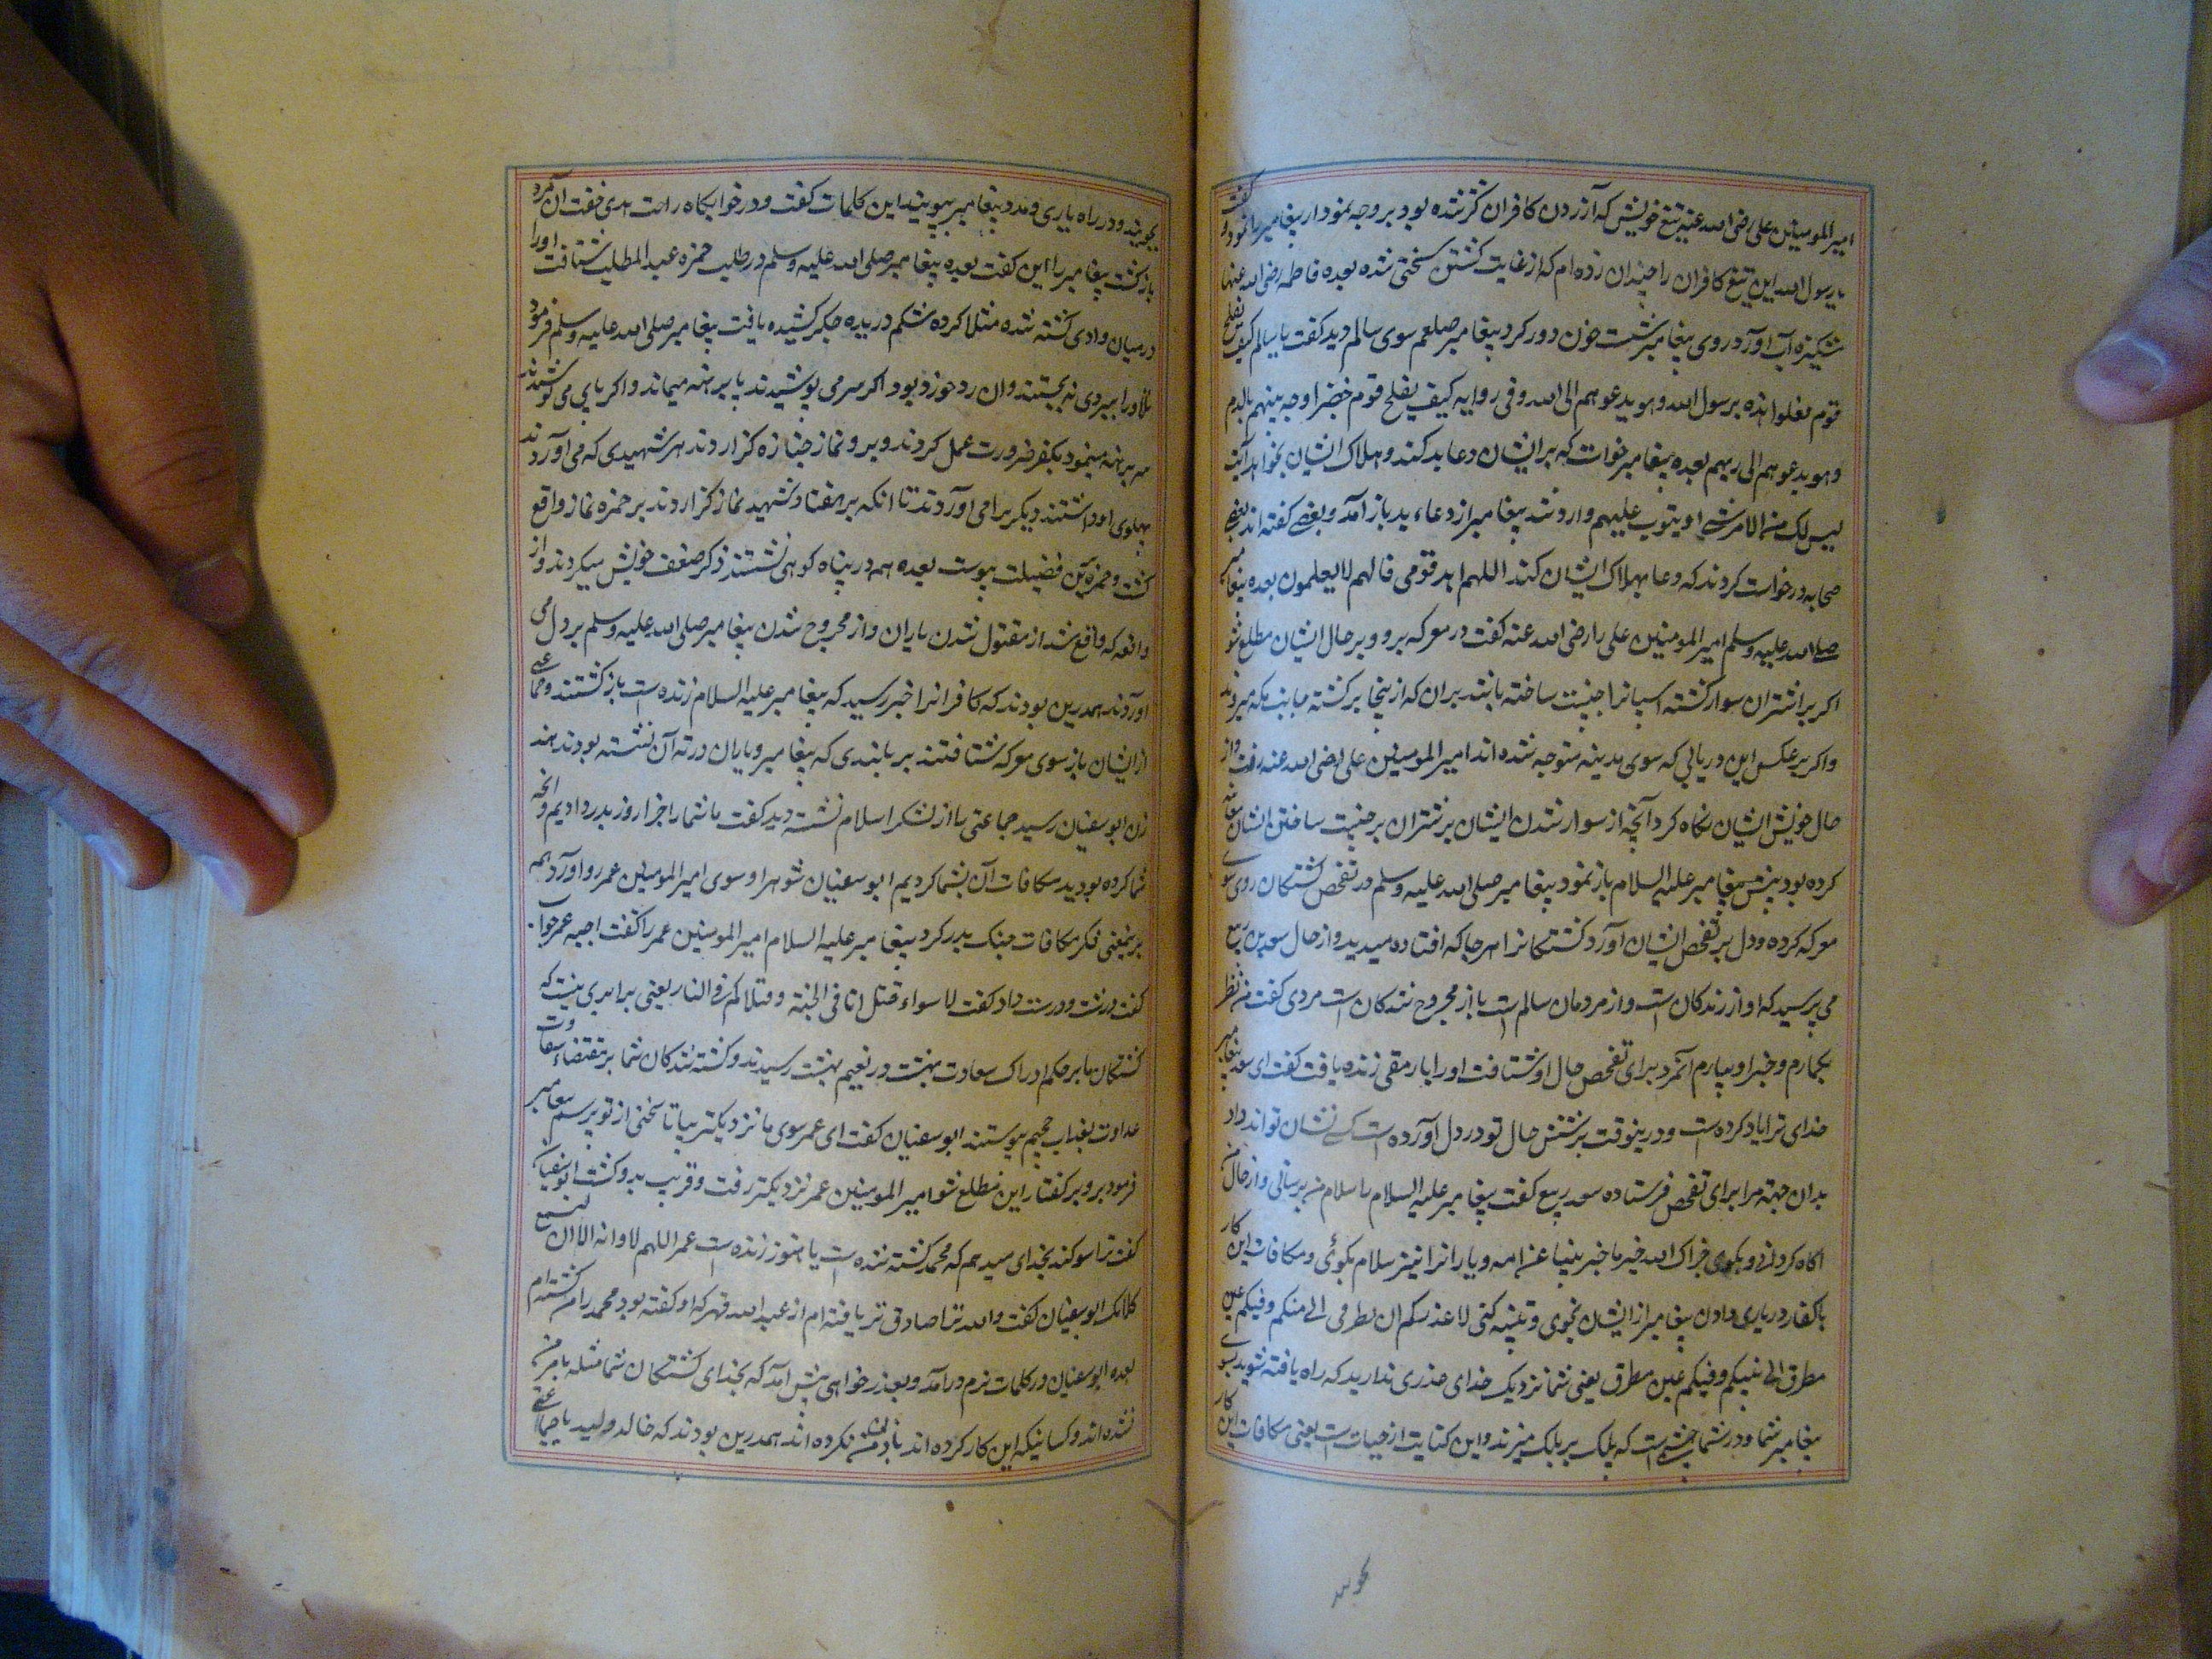 امیر المومنین علی رضی الله عنه تیغ خویش که از زدن کافران کژ شده بود بر وجه نمودار پیغامبر را نمود و گفت
یا رسول الله این تیغ کافران را چندان زده ام که از غایت کشتن سختی شده بعده فاطمه رضی الله عنها
مشکیزه آب آورد و روی پیغامبر شست خون دور کرد پیغامبر صلعم سوی سالم دید گفت یا سالم کیف یفلح
قوم فعلوا هذه برسول الله وهو یدعوهم الی الله وفی روایه کیف یفلح قوم خضبوا وجه نبیهم بالدم
وهو یدعوهم الی ربهم بعده پیغامبر خواست که بر ایشان دعا بد کند و هلاک ایشان بخواهد آیت
لیس لک من الامر شی او یتوب علیهم وارد شد پیغامبر از دعاء بد باز آمد و بعضے گفته اند بعضے
صحابه درخواست کردند که دعا بهلاک ایشان کند اللهم اهد قومی فانهم لا یعلمون بعده پیغامبر
صلے الله علیه وسلم امیر المومنین علی را رضی الله عنه گفت در معرکه برو و بر حال ایشان مطلع شو
اکر بر اشتران سوار کشته اسپانرا جنیبت ساخته باشند بدان که از ینجا برکشته جانب مکه میروند
واکر بر عکس این دریابی که سوی مدینه متوجه شده اند امیر المومنین علی رضی الله عنه رفت و از
حال خویش ایشان نکاه کرد آنچه از سوار شدن ایشان بر شتران بر جنیبت ساختن ایشان معاینه
کرده بود پیش پیغامبر علیه السلام باز نمود پیغامبر صلی الله علیه وسلم در تفحص کشتکان روی سوی
معرکه کرده و دل بر تفحص ایشان آورد کشتکانرا هر جا که افتاده میدید و از حال سعد بن ربیع
می پرسید که او از زندکان است و از مردمان سالم است یا از مجروح شدکان است مردی گفت من نظر
بکمارم و خبر او بیارم آنمرد برای تفحص حال او شتافت او را با رمقی زنده یافت گفت ای سعد پیغامبر
خدای ترا یاد کرده است و درینوقت پرسش حال تو در دل آورده است کسے نشان تو اند داد
بدان جهة مرا برای تفحص فرستاده سعد ربیع گفت پیغامبر علیه السلام را سلام من برسانی و از حال من
آکاه کردانی و بکوی جزاک الله خیر ما جزی نبیا عن امه و یارانرا نیز سلام بکوئی و مکافات این کار
با کفار در یاری دادن پیغامبر از ایشان بجوی و تنبیه کنی لا عذر لکم ان یطرق الی منکم وفیکم عین
مطرق الی نبیکم وفیکم عین مطرق یعنی شما نزدیک خدای عذری ندارید که راه یافته شود سوی
پیغامبر شما و در شما چشمے است که پلک بر پلک میزند و این کنایت از حیات است یعنی مکافات این کار
بجوئید و در راه یاری و مدد پیغامبر بپوئید این کلمات گفت و در خوابکاه راحت ابدی خفت آن مرد
بازکشت پیغامبر را این گفت بعده پیغامبر صلی الله علیه وسلم در طلب حمزه عبد المطلب شتافت او را
در میان وادی کشته شده مثلا کرده شکم دریده جکر کشیده یافت پیغامبر صلی الله علیه وسلم فرمود
تا او را ببردی نه پیچیدند و آن رد خورد بود اکر سر می پوشیدند پا برهنه میماند و اکر پای می پوشیدند
سر برهنه مینمود بکفر ضرورت عمل کردند و برو نماز جنازه کزاردند هر شهیدی که می آوردند
پهلوی او داشتند دیکر را می آوردند تا آنکه بر هفتاد شهید نماز کزاردند بر حمزه نماز واقع
کشت و حمزه باین فضیلت پیوست بعده همه در پناه کوهی نشستند ذکر ضعف خویش میکردند و از
واقعه که واقع شد از مقتول شدن یاران و از مجروح شدن پیغامبر صلی الله علیه وسلم بر دل می
آوردند همدرین بودند که کافرانرا خبر رسید که پیغامبر علیه السلام زنده است بازکشتند و جماعتی
از ایشان باز سوی معرکه شتافتند بر بلندی که پیغامبر و یاران در ته آن نشسته بودند هند
زن ابو سفیان رسید جماعتی را از لشکر اسلام نشسته دید گفت ما شما را جزا روز بدر دادیم و آنچه
شما کرده بودید مکافات آن بشما کردیم ابو سفیان شوهر او سوی امیر المومنین عمر رو آورد هم
برینمعنی ذکر مکافات جنک بدر کرد پیغامبر علیه السلام امیر المومنین عمر را گفت اجبه عمر جواب
گفت درشت و درست داد گفت لا سواء قتلانا فی الجنة وقتلاکم فی النار یعنی برابری نیست که
کشتکان ما بر حکم ادراک سعادت بهشت در نعیم بهشت رسیدند و کشته شدکان شما بر مقتضاء شقاوت
عداوت بعذاب جحیم پیوستند ابو سفیان گفت ای عمر سوی ما نزدیکتر بیا تا سخنی از تو پرسم پیغامبر
فرمود برو بر کفتار این مطلع شو امیر المومنین عمر نزدیکتر رفت و قریب بدو کشت ابو سفیان
گفت ترا سوکند بخدای میدهم که محمد کشته شده است یا هنوز زنده است عمر اللهم لا وانه الآن لیسمع
کلامک ابو سفیان گفت والله ترا صادق تر یافته ام از عبد الله قهر که او کفته بود محمد را من کشته ام
بعده ابو سفیان در کلمات نرم درآمد و بعذر خواهی پیش آمد که بخدای کشتکان شما مثله بامر من
نشده اند و کسانیکه این کار کرده اند باذن من نکرده اند همدرین بودند که خالد ولید با جماعتی
بجوئید